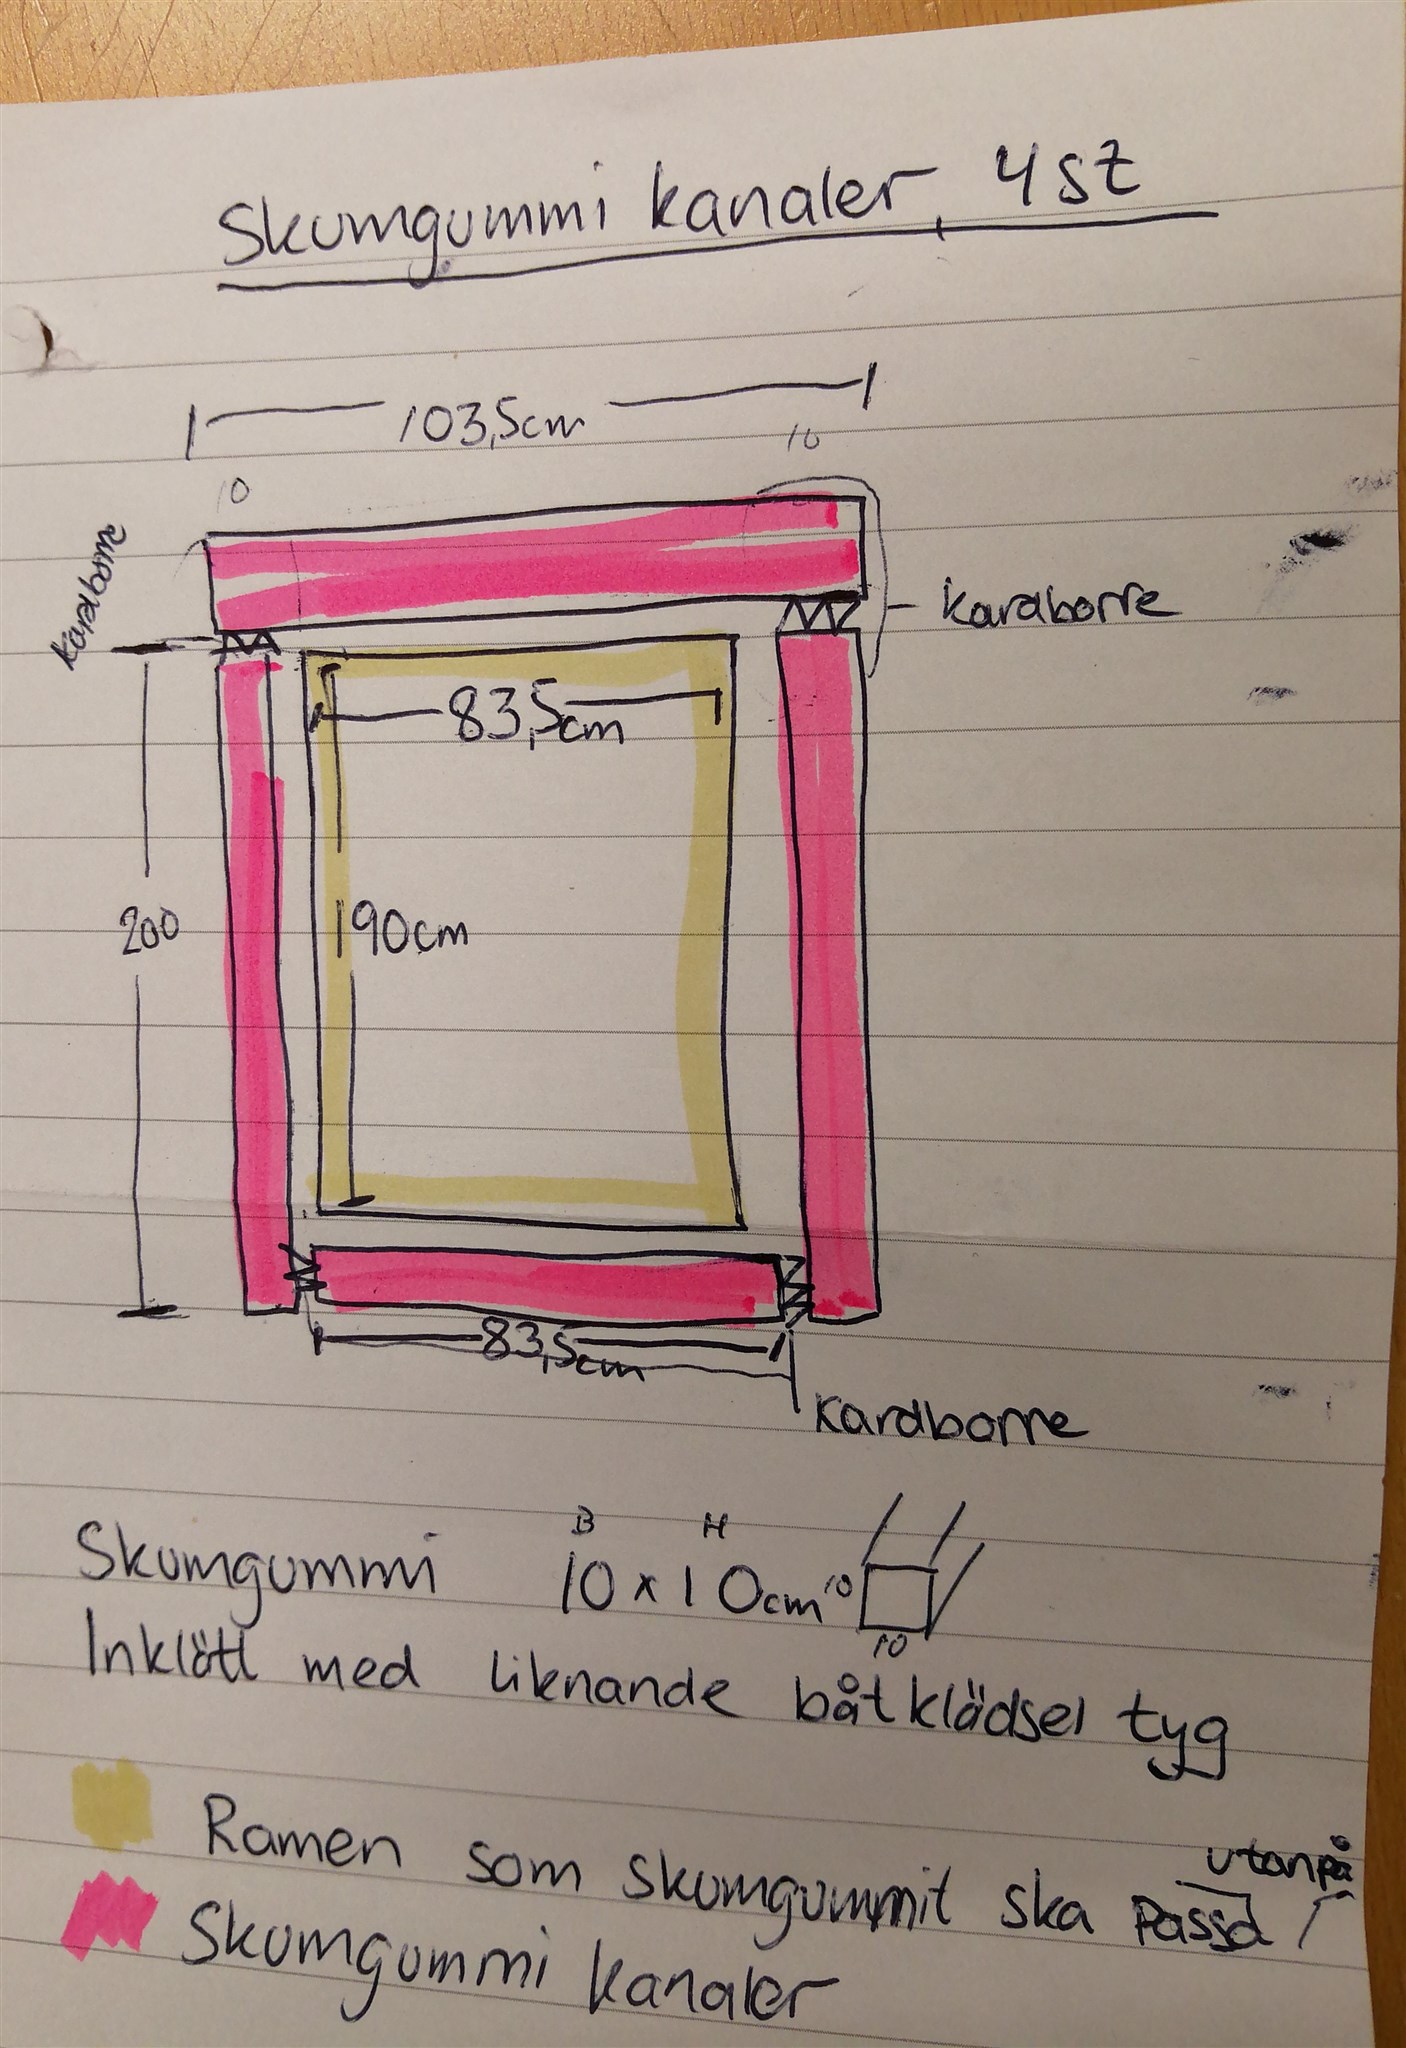 Skumgummi kanaler, 4 st
103,5cm
10
10
Kardborre
Kardborre
83,5cm
200
190cm
83,5cm
Kardborre
B H
Skumgummi 10 x 10cm 10
10
Inklätt med liknande båtklädsel tyg
utanpå
Ramen som skumgummit ska passa
Skumgummi kanaler